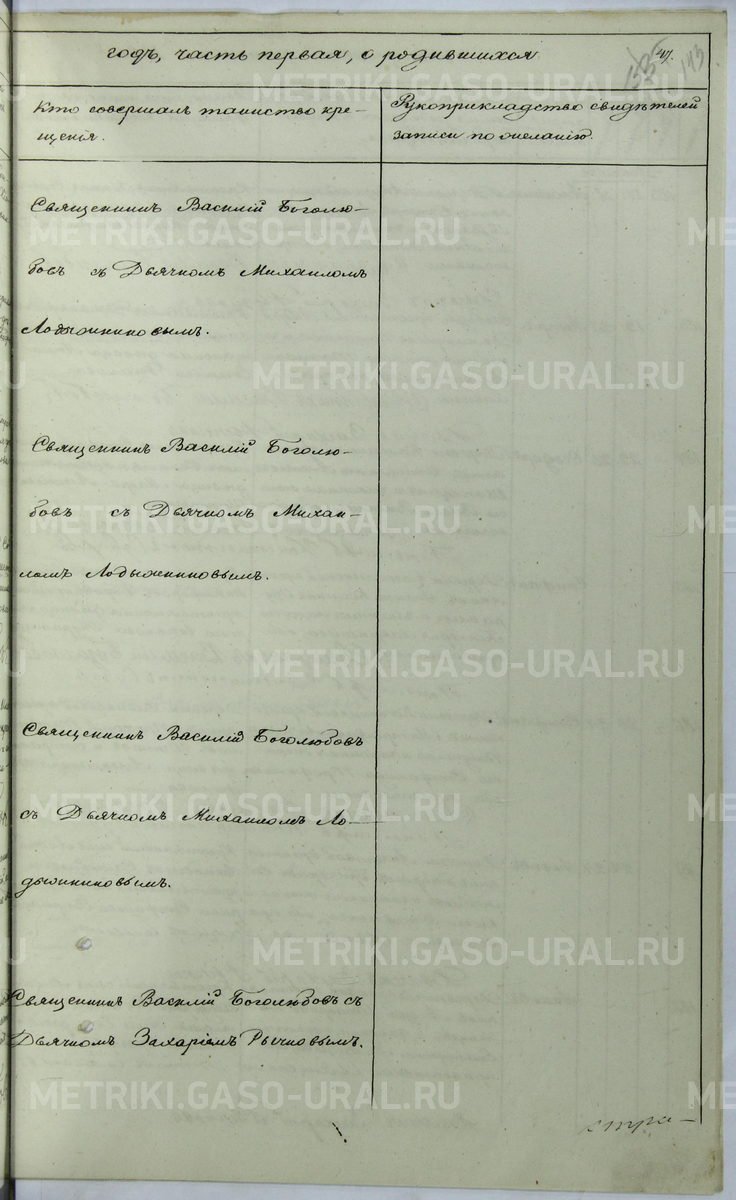 годъ, часть первая, о родившихся
47.
143
Кто совершалъ таинство кре-
щенія.
Рукоприкладство свидѣтелей
записи по желанію.
Священникъ Василій Боголю-
бовъ съ Дьячкомъ Михаиломъ
Лодыжниковымъ.
Священникъ Василій Боголю-
бовъ съ Дьячкомъ Михаи-
ломъ Лодыжниковымъ.
Священникъ Василій Боголюбовъ
съ Дьячкомъ Михаиломъ Ло-
дыжниковымъ.
Священникъ Василій Боголюбовъ съ
Дьячкомъ Захаріемъ Рычковымъ.
стра-
METRIKI.GASO-URAL.RU